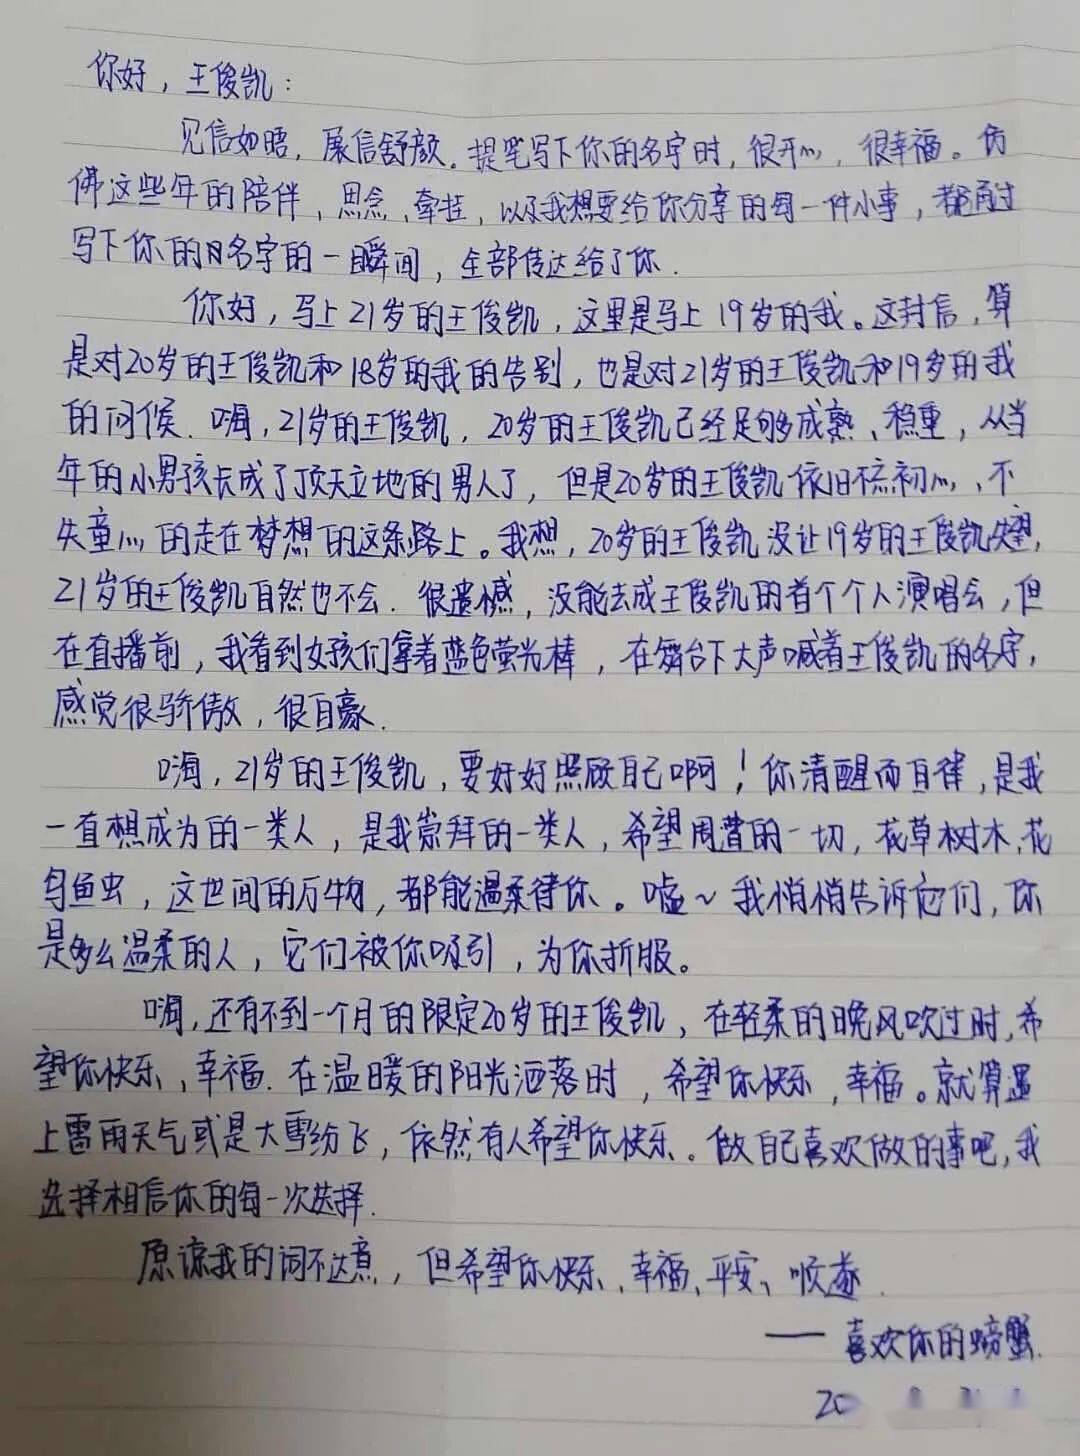 你好，王俊凯：
见信如晤，展信舒颜。提笔写下你的名字时，很开心，很幸福。仿
佛这些年的陪伴、思念、牵挂，以及我想要给你分享的每一件小事，都通过
写下你的名字的一瞬间，全部传达给了你.
你好，马上21岁的王俊凯，这里是马上19岁的我。这封信，算
是对20岁的王俊凯和18岁的我的告别，也是对21岁的王俊凯和19岁的我
的问候. 嗨，21岁的王俊凯，20岁的王俊凯已经足够成熟、稳重，从当
年的小男孩长成了顶天立地的男人了，但是20岁的王俊凯依旧不忘初心、不
失童心的走在梦想的这条路上。我想，20岁的王俊凯没让19岁的王俊凯失望，
21岁的王俊凯自然也不会. 很遗憾，没能去成王俊凯的首个个人演唱会，但
在直播前，我看到女孩们拿着蓝色萤光棒，在舞台下大声喊着王俊凯的名字，
感觉很骄傲，很自豪.
嗨，21岁的王俊凯，要好好照顾自己啊！你清醒而自律，是我
一直想成为的一类人，是我崇拜的一类人，希望周遭的一切，花草树木，花
鸟鱼虫，这世间的万物，都能温柔待你。嘘~ 我悄悄告诉它们，你
是多么温柔的人，它们被你吸引，为你折服。
嗨，还有不到一个月的限定20岁的王俊凯，在轻柔的晚风吹过时，希
望你快乐、幸福. 在温暖的阳光洒落时，希望你快乐、幸福。就算遇
上雷雨天气或是大雪纷飞，依然有人希望你快乐。做自己喜欢做的事吧，我
选择相信你的每一次选择.
原谅我的词不达意，但希望你快乐、幸福、平安、顺遂.
—— 喜欢你的螃蟹.
20